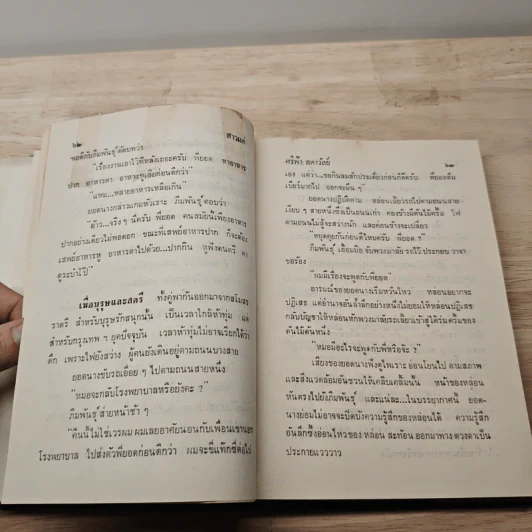 ๖๒
สาวแก่
พอดีกับภีมพันธุ์ตอบว่า
"เรื่องงานเอาไว้ทีหลังเถอะครับ พี่ยอด หาอาหาร
ปาก อาหารตา อาหารหูเสียก่อนดีกว่า"
"แหม...หลายอาหารเหลือเกิน"
ยอดนางกล่าวแกมหัวเราะ ภีมพันธุ์ตอบว่า
"อ้าว...จริง ๆ นี่ครับ พี่ยอด คนสมัยนี้เพียงอาหาร
ปากอย่างเดียวไม่พอดอก ขณะที่เสพย์อาหารปาก ก็จะต้อง
เสพย์อาหารหู อาหารตาไปด้วย...ปากกิน หูฟังดนตรี ตา
ดูระบำโป๊"
เมื่อบุรุษและสตรี ทั้งคู่พากันออกมาจากสโมสร
ราตรี สำหรับบุรุษรักสนุกนั้น เป็นเวลาใกล้ห้าทุ่ม และ
สำหรับกรุงเทพ ฯ ยุคปัจจุบัน เวลาห้าทุ่มไม่อาจเรียกได้ว่า
ดึก เพราะไฟยังสว่าง ผู้คนยังเดินอยู่ตามถนนบางสาย
ยอดนางขับรถเอื่อย ๆ ไปตามถนนสายหนึ่ง
"หมอจะกลับโรงพยาบาลหรือยังคะ ?"
ภีมพันธุ์ส่ายหน้าช้า ๆ
"คืนนี้ไม่ใช่เวรผม ผมเลยอาศัยนอนกับเพื่อนแขนอก
โรงพยาบาล ไปส่งตัวพี่ยอดก่อนดีกว่า ผมจะขี่แท๊กซี่ต่อไป
ศรีฟ้า ลดาวัลย์
๖๓
เอง แต่ว่า...รถกินลมสักประเดี๋ยวก่อนก็ดีครับ พี่ยอดดื่ม
เบียร์มากไป ออกจะมึน ๆ"
ยอดนางปฏิบัติตาม หล่อนเลี้ยวรถไปตามถนนสาย
เงียบ ๆ สายหนึ่งซึ่งเป็นถนนเก่า สองข้างมีต้นไม้ครึ้ม ไฟ
ตามถนนไม่สู้จะสว่างนัก และค่อนข้างจะเปลี่ยว
"หยุดคุยกันก่อนดีไหมครับ พี่ยอด ?"
ภีมพันธุ์ เอื้อมมือ จับพวงมาลัย รถไว้ ประกอบ วาจา
ขอร้อง
"ผมมีเรื่องจะพูดกับพี่ยอด"
อารมณ์ของยอดนางเริ่มหวั่นไหว หล่อนอยากจะ
ปฏิเสธ แต่อำนาจอันล้ำลึกอย่างหนึ่งไม่ยอมให้หล่อนปฏิเสธ
กลับบัญชาให้หล่อนหักพวงมาลัยรถเลี้ยวเข้าสู่ใต้ร่มครึ้มของ
ต้นไม้ต้นหนึ่ง
"หมอมีอะไรจะพูดกับพี่หรือจ๊ะ ?"
เสียงของยอดนางฟังดูไพเราะ อ่อนโยนไป ตามสภาพ
และสิ่งแวดล้อมอันชวนให้เคลิบเคลิ้มนั้น หน้าของหล่อน
หันตรงไปยังภีมพันธุ์ และแน่ละ...ในบรรยากาศนี้ ยอด-
นางย่อมไม่อาจจะปิดบังความรู้สึกของหล่อนได้ ความรู้สึก
อันลึกซึ้งอ่อนไหวของ หล่อน สะท้อน ออกมาทาง ดวงตาเป็น
ประกายแวววาว